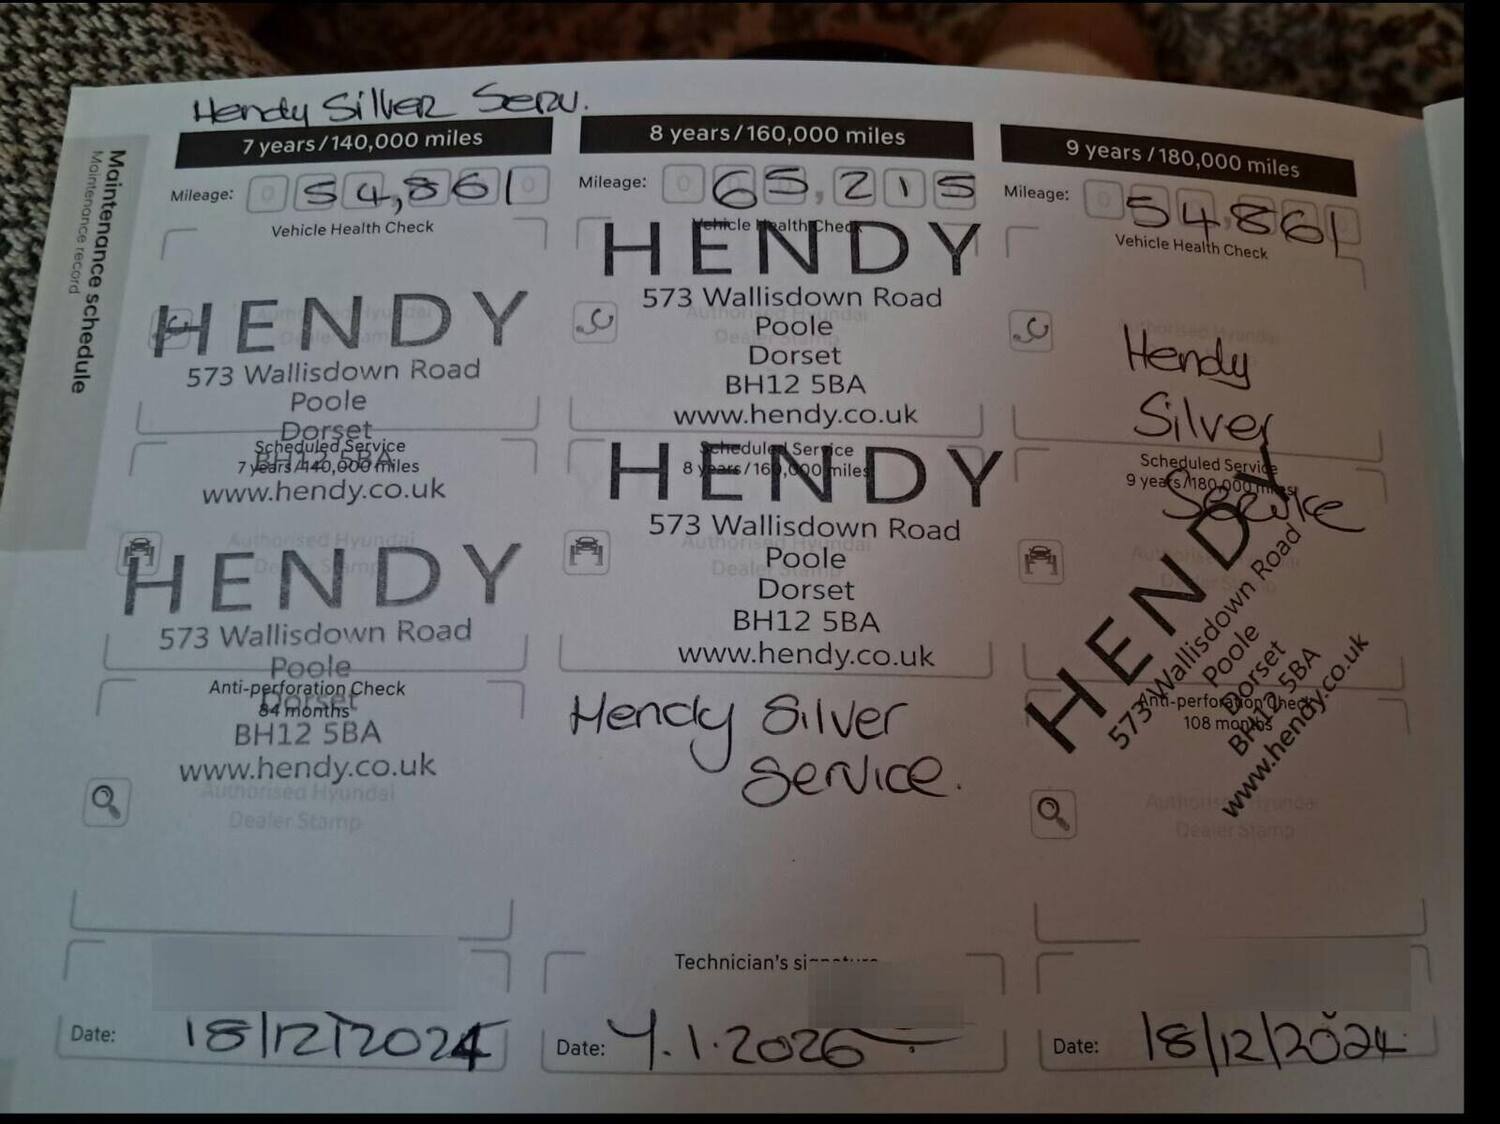 Hendy Silver Serv.
Maintenance schedule
Maintenance record
7 years/140,000 miles
Mileage: 54,861
Vehicle Health Check
HENDY
573 Wallisdown Road
Poole
Dorset
BH12 5BA
www.hendy.co.uk
Authorised Hyundai
Dealer Stamp
Scheduled Service
7 years/140,000 miles
HENDY
573 Wallisdown Road
Poole
Dorset
BH12 5BA
www.hendy.co.uk
Authorised Hyundai
Dealer Stamp
Anti-perforation Check
84 months
Authorised Hyundai
Dealer Stamp
Date: 18/12/2024
8 years/160,000 miles
Mileage: 65,215
Vehicle Health Check
HENDY
573 Wallisdown Road
Poole
Dorset
BH12 5BA
www.hendy.co.uk
Authorised Hyundai
Dealer Stamp
Scheduled Service
8 years/160,000 miles
HENDY
573 Wallisdown Road
Poole
Dorset
BH12 5BA
www.hendy.co.uk
Authorised Hyundai
Dealer Stamp
Hendy Silver
Service.
Technician's signature
Date: 7.1.2026
9 years/180,000 miles
Mileage: 54,861
Vehicle Health Check
Authorised Hyundai
Dealer Stamp
Hendy
Silver
Service
Scheduled Service
9 years/180,000 miles
Authorised Hyundai
Dealer Stamp
HENDY
573 Wallisdown Road
Poole
Dorset
BH12 5BA
www.hendy.co.uk
Anti-perforation Check
108 months
Authorised Hyundai
Dealer Stamp
Date: 18/12/2024